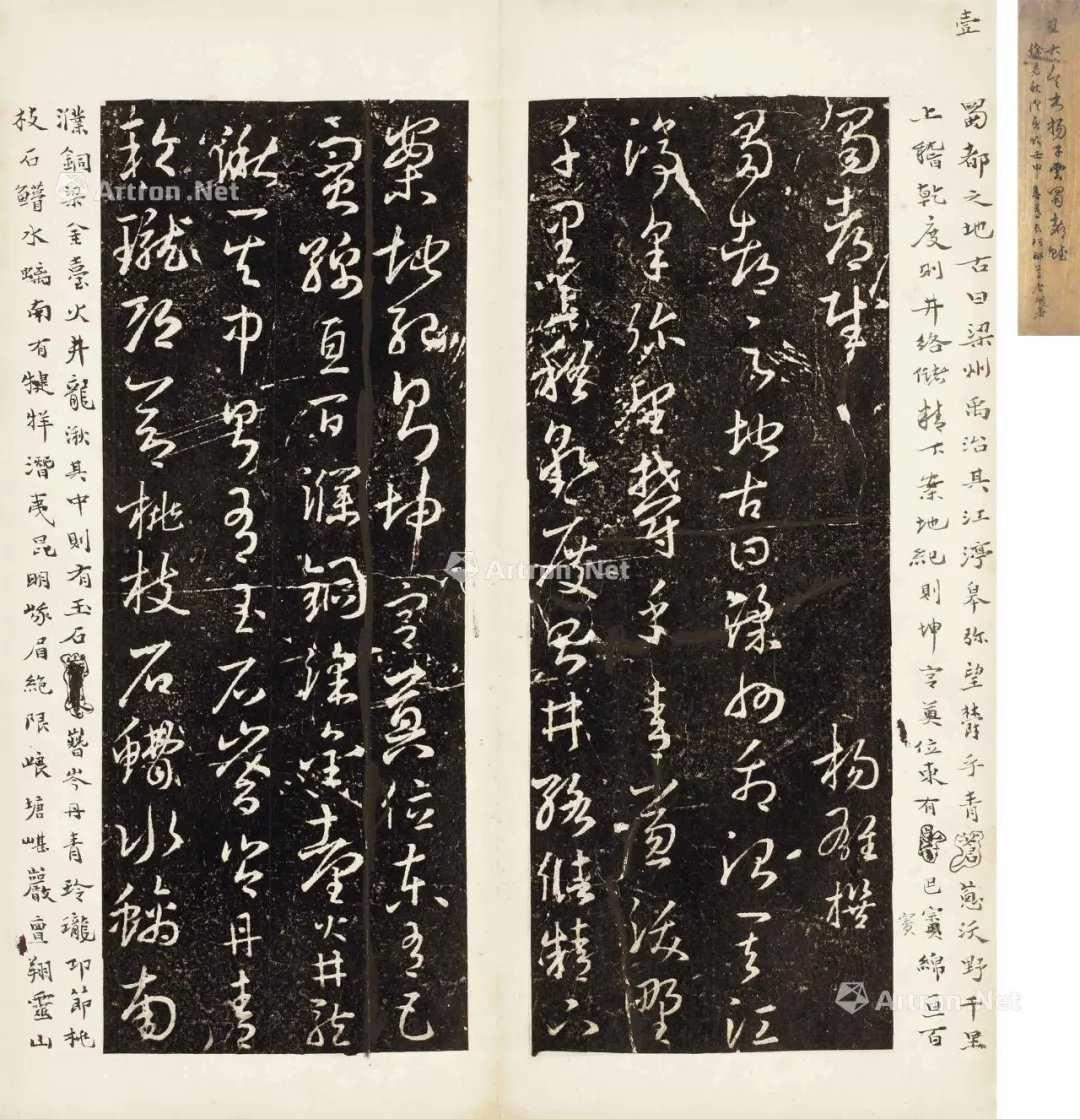 壹
蜀都之地古曰梁州禹治其江渟皋弥望欝乎青蔥沃野千里
上稽乾度則井絡儲精下案地紀則坤宫奠位東有巴賨綿亘百
賨
蜀都賦 楊雄撰
蜀都之地古曰梁州禹治其江
渟皋弥望欝乎青蔥沃野
千里上稽乾度則井絡儲精下
案地紀則坤宫奠位東有巴
賨綿亘百濮銅梁金臺火井龍
湫其中則有玉石嶜岑丹青
玲瓏邛節桃枝石鱛水螭南
濮銅梁金臺火井龍湫其中則有玉石嶜岑丹青玲瓏邛節桃
枝石鱛水螭南有犍牂潛夷昆明峩眉絶限㟍嵣堪巖亶翔靈山
Artron.Net
Artron.Net
Artron.Net
Artron.Net